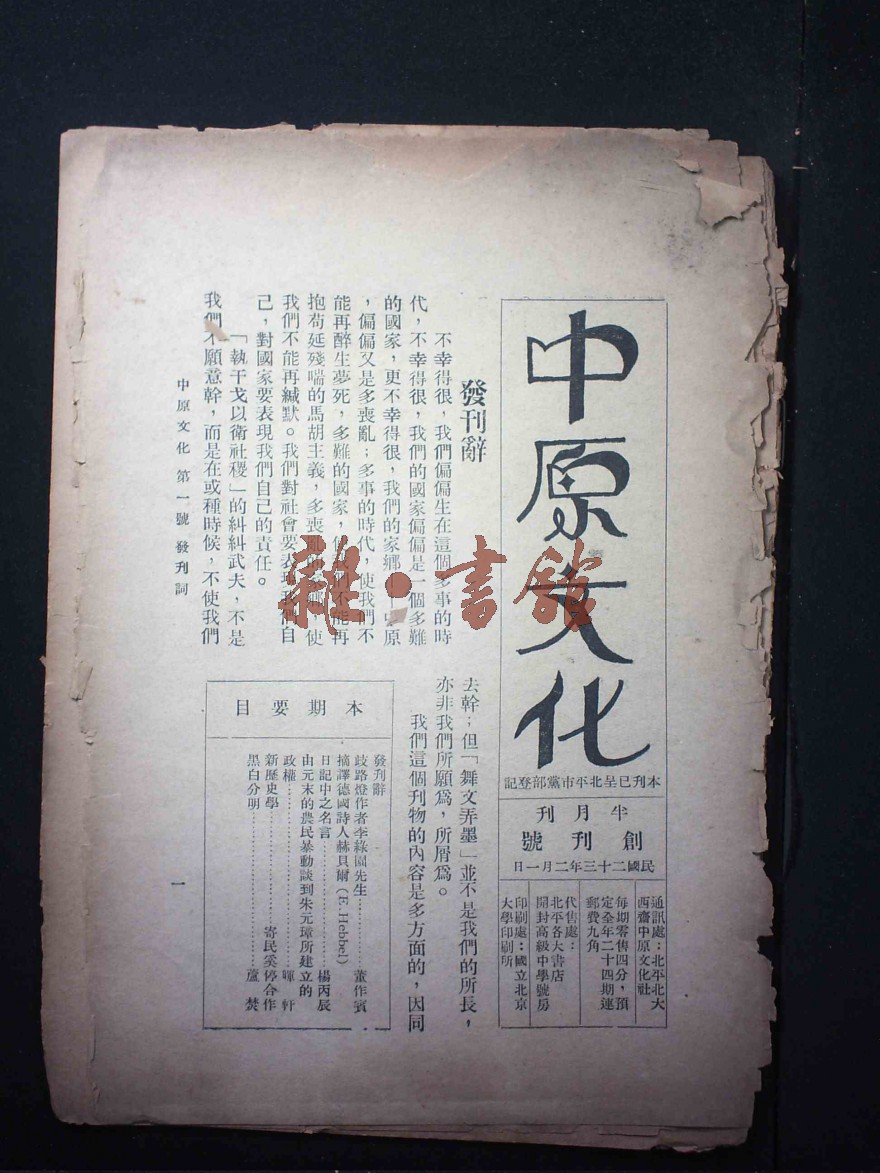 中原文化
本刊已呈北平市黨部登記
半月刊
創刊號
民國二十三年二月一日
通訊處:北平北大
西齋中原文化社
每期零售四分,預
定全年二十四期連
郵費九角
代售處:
北平各大書店
開封高級中學號房
印刷處:國立北京
大學印刷所
發刊辭
不幸得很,我們偏偏生在這個多事的時
代,不幸得很,我們的國家偏偏是一個多難
的國家,更不幸得很,我們的家鄉 中原
,偏偏又是多喪亂;多事的時代,使我們不
能再醉生夢死,多難的國家,使我們不能再
抱苟延殘喘的馬胡主義,多喪亂的家鄉,使
我們不能再緘默。我們對社會要表現我們自
己,對國家要表現我們自己的責任。
「執干戈以衛社稷」的糾糾武夫,不是
我們不願意幹,而是在或種時候,不使我們
去幹;但「舞文弄墨」並不是我們的所長,
亦非我們所願爲,所屑爲。
我們這個刊物的內容是多方面的,因同
本期要目
發刊辭
歧路燈作者李綠園先生………董作賓
摘譯德國詩人赫貝爾(E. Hebbel)
日記中之名言………楊丙辰
由元末的農民暴動談到朱元璋所建立的
政權………暉軒
新歷史學………寄民奚停合作
黑白分明………蘆焚
中原文化 第一號 發刊詞
一
雜·書館